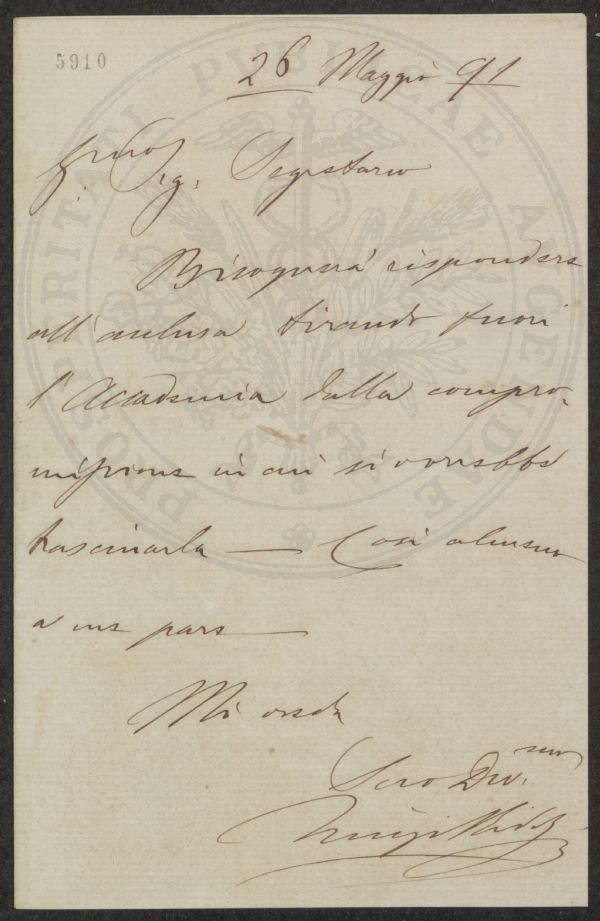 5910
26 Maggio 91
Ill.mo Sig. Segretario
Bisognerà rispondere
all'acclusa tirando fuori
l'Accademia dalla compro-
missione in cui si vorrebbe
trascinarla — Così almeno
a me pare —
Mi creda
Suo Dev.mo
Luigi
PROSPERITATI PUBLICAE AUGENDAE